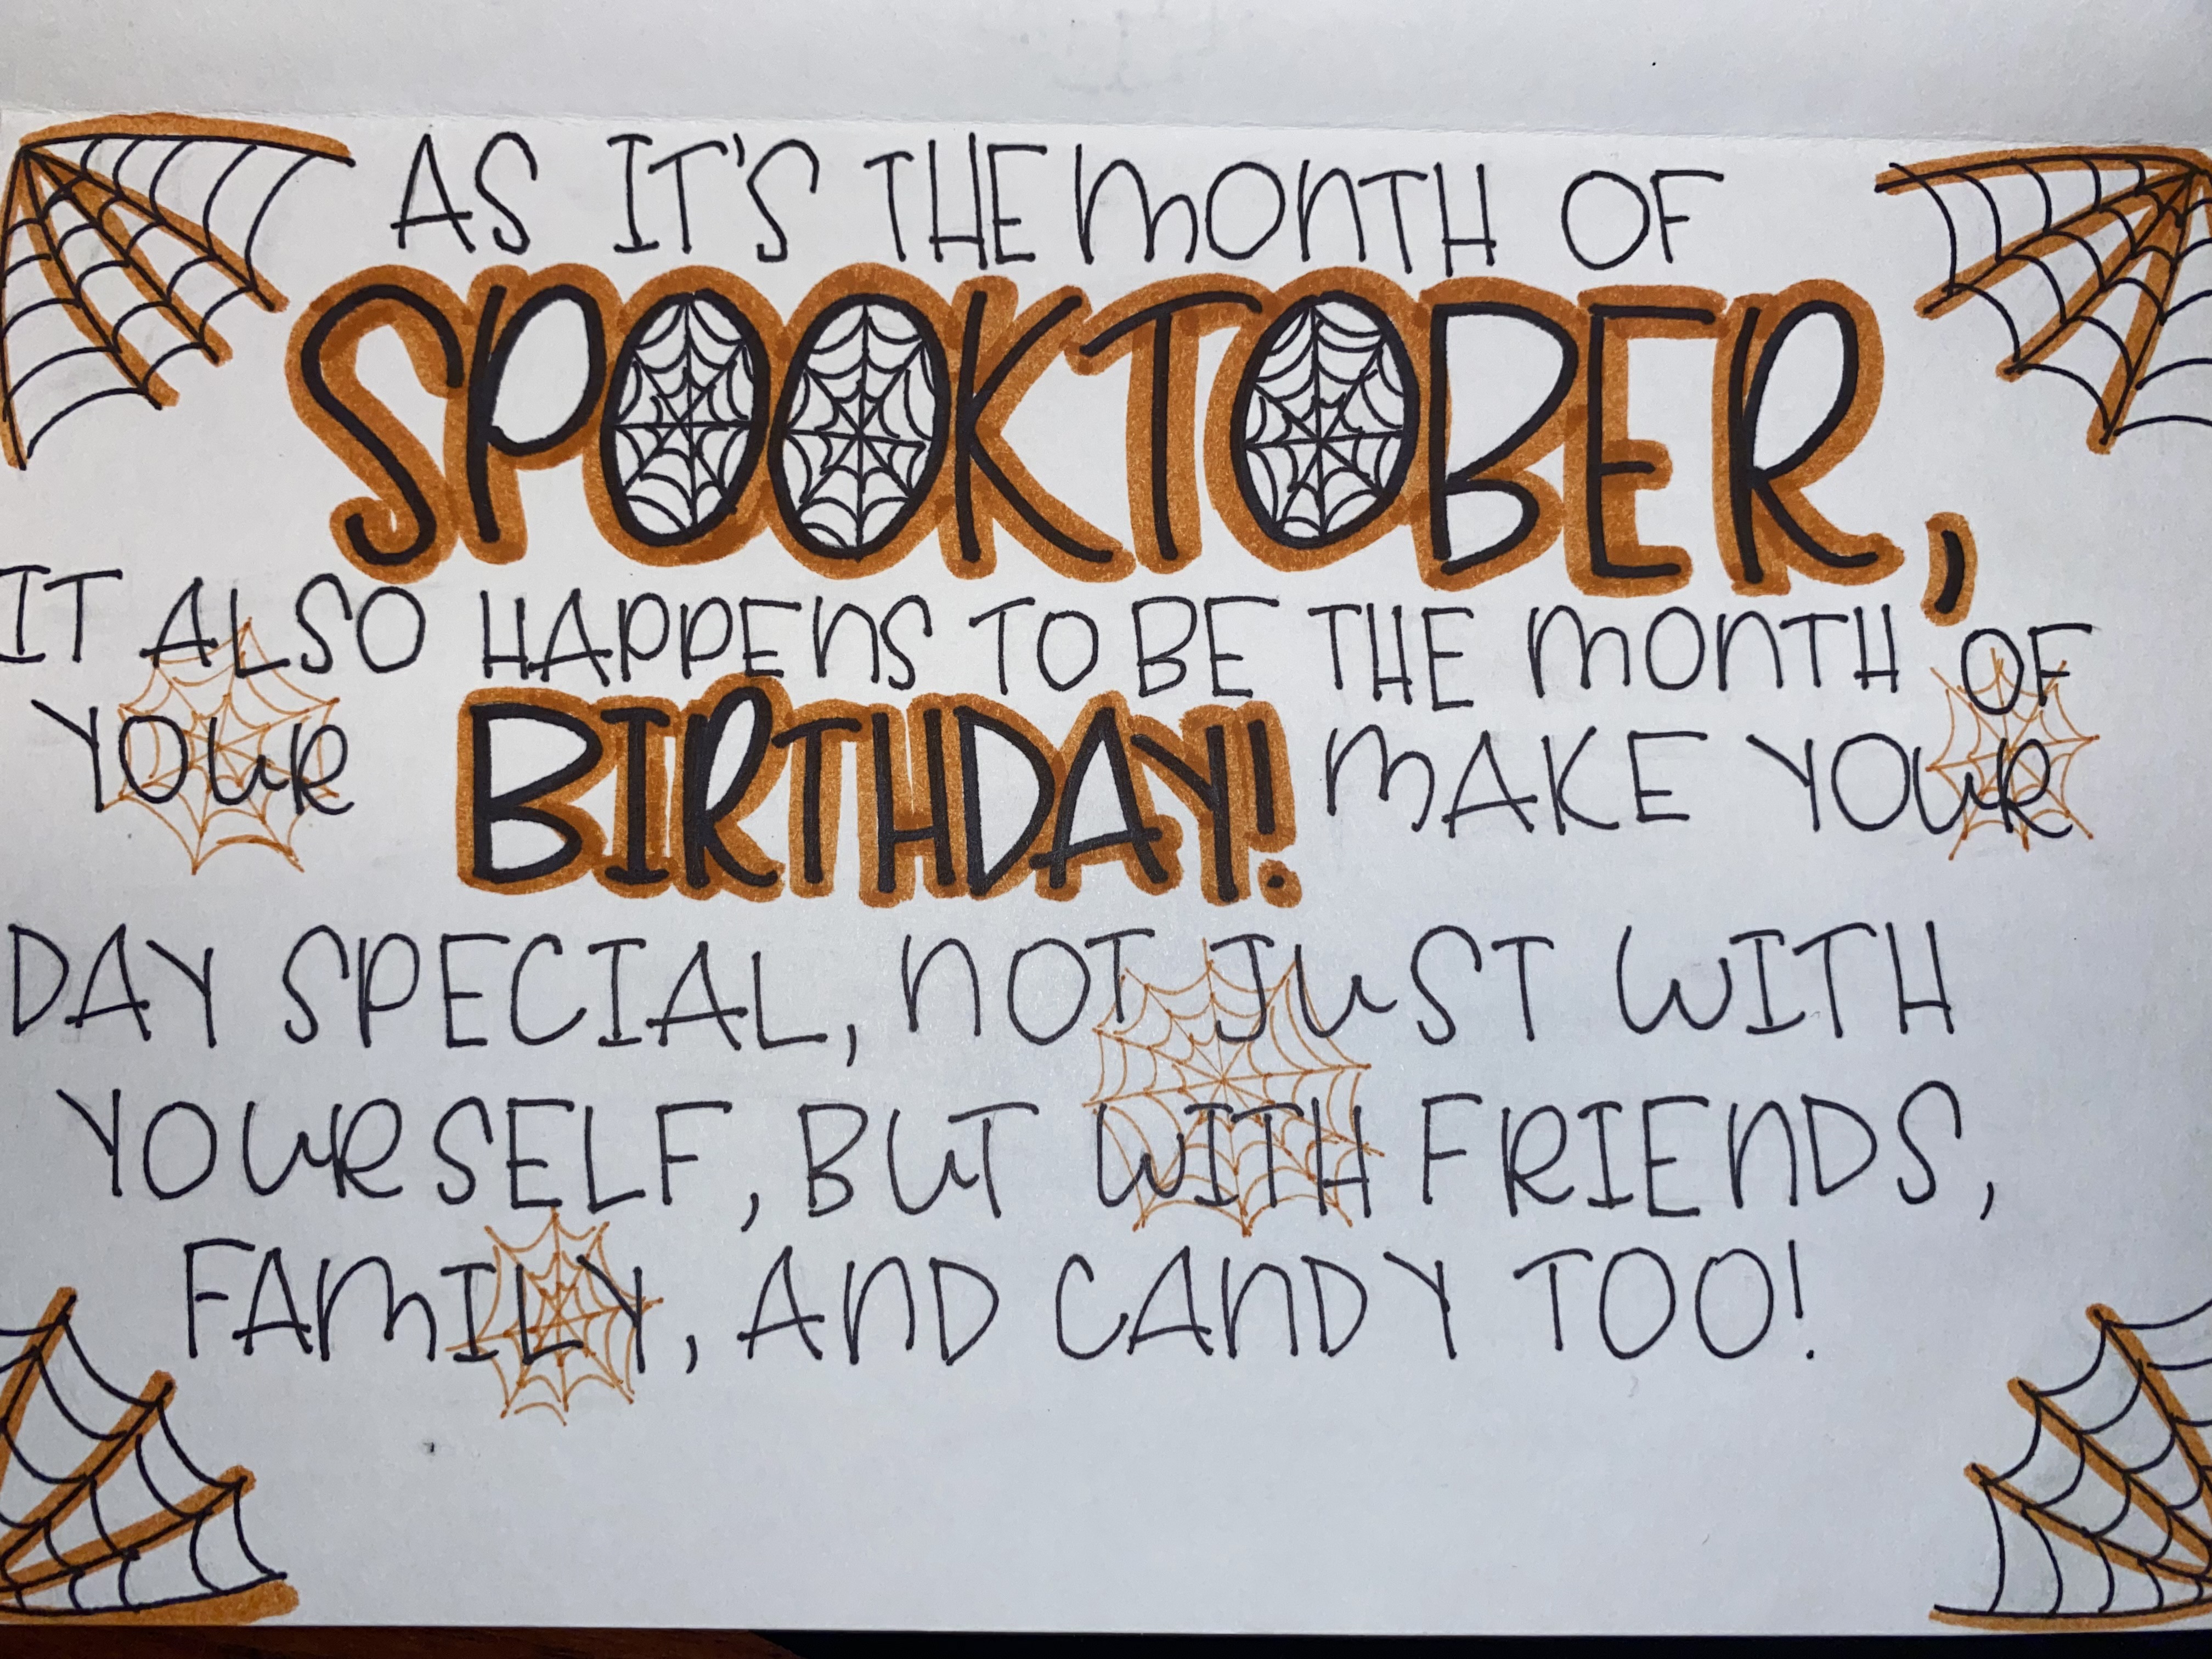 AS IT'S THE MONTH OF
SPOOKTOBER,
IT ALSO HAPPENS TO BE THE MONTH OF
YOUR BIRTHDAY! MAKE YOUR
DAY SPECIAL, NOT JUST WITH
YOURSELF, BUT WITH FRIENDS,
FAMILY, AND CANDY TOO!